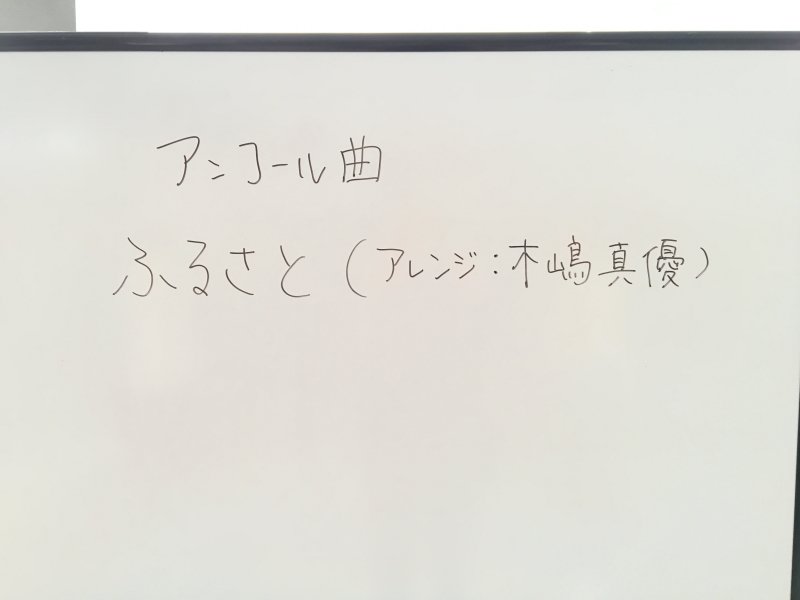 アンコール曲
ふるさと(アレンジ:木嶋真優)